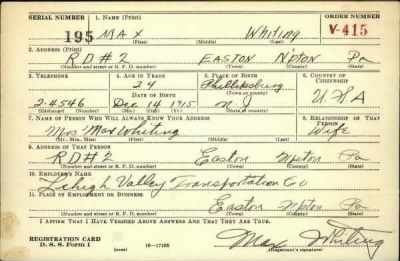 SERIAL NUMBER 1. NAME (Print) ORDER NUMBER
195 MAX Whiting V-415
(First) (Middle) (Last)
2. ADDRESS (Print)
RD#2 EASTON N'pton Pa
(Number and street or R. F. D. number) (Town) (County) (State)
3. TELEPHONE 4. AGE IN YEARS 5. PLACE OF BIRTH 6. COUNTRY OF CITIZENSHIP
24 Phillipsburg
DATE OF BIRTH (Town or county)
2-4546 Dec 14 1915 N.J. USA
(Mo.) (Day) (Yr.) (State or country)
7. NAME OF PERSON WHO WILL ALWAYS KNOW YOUR ADDRESS 8. RELATIONSHIP OF THAT PERSON
Mrs Max Whiting Wife
(Mr., Mrs., Miss) (First) (Middle) (Last)
9. ADDRESS OF THAT PERSON
RD#2 Easton Npton Pa
(Number and street or R. F. D. number) (Town) (County) (State)
10. EMPLOYER'S NAME
Lehigh Valley Transportation Co
11. PLACE OF EMPLOYMENT OR BUSINESS
Easton Npton Pa
(Number and street or R. F. D. number) (Town) (County) (State)
I AFFIRM THAT I HAVE VERIFIED ABOVE ANSWERS AND THAT THEY ARE TRUE.
REGISTRATION CARD
D. S. S. Form 1 (over) 16—17105 Max Whiting
(Registrant's signature)